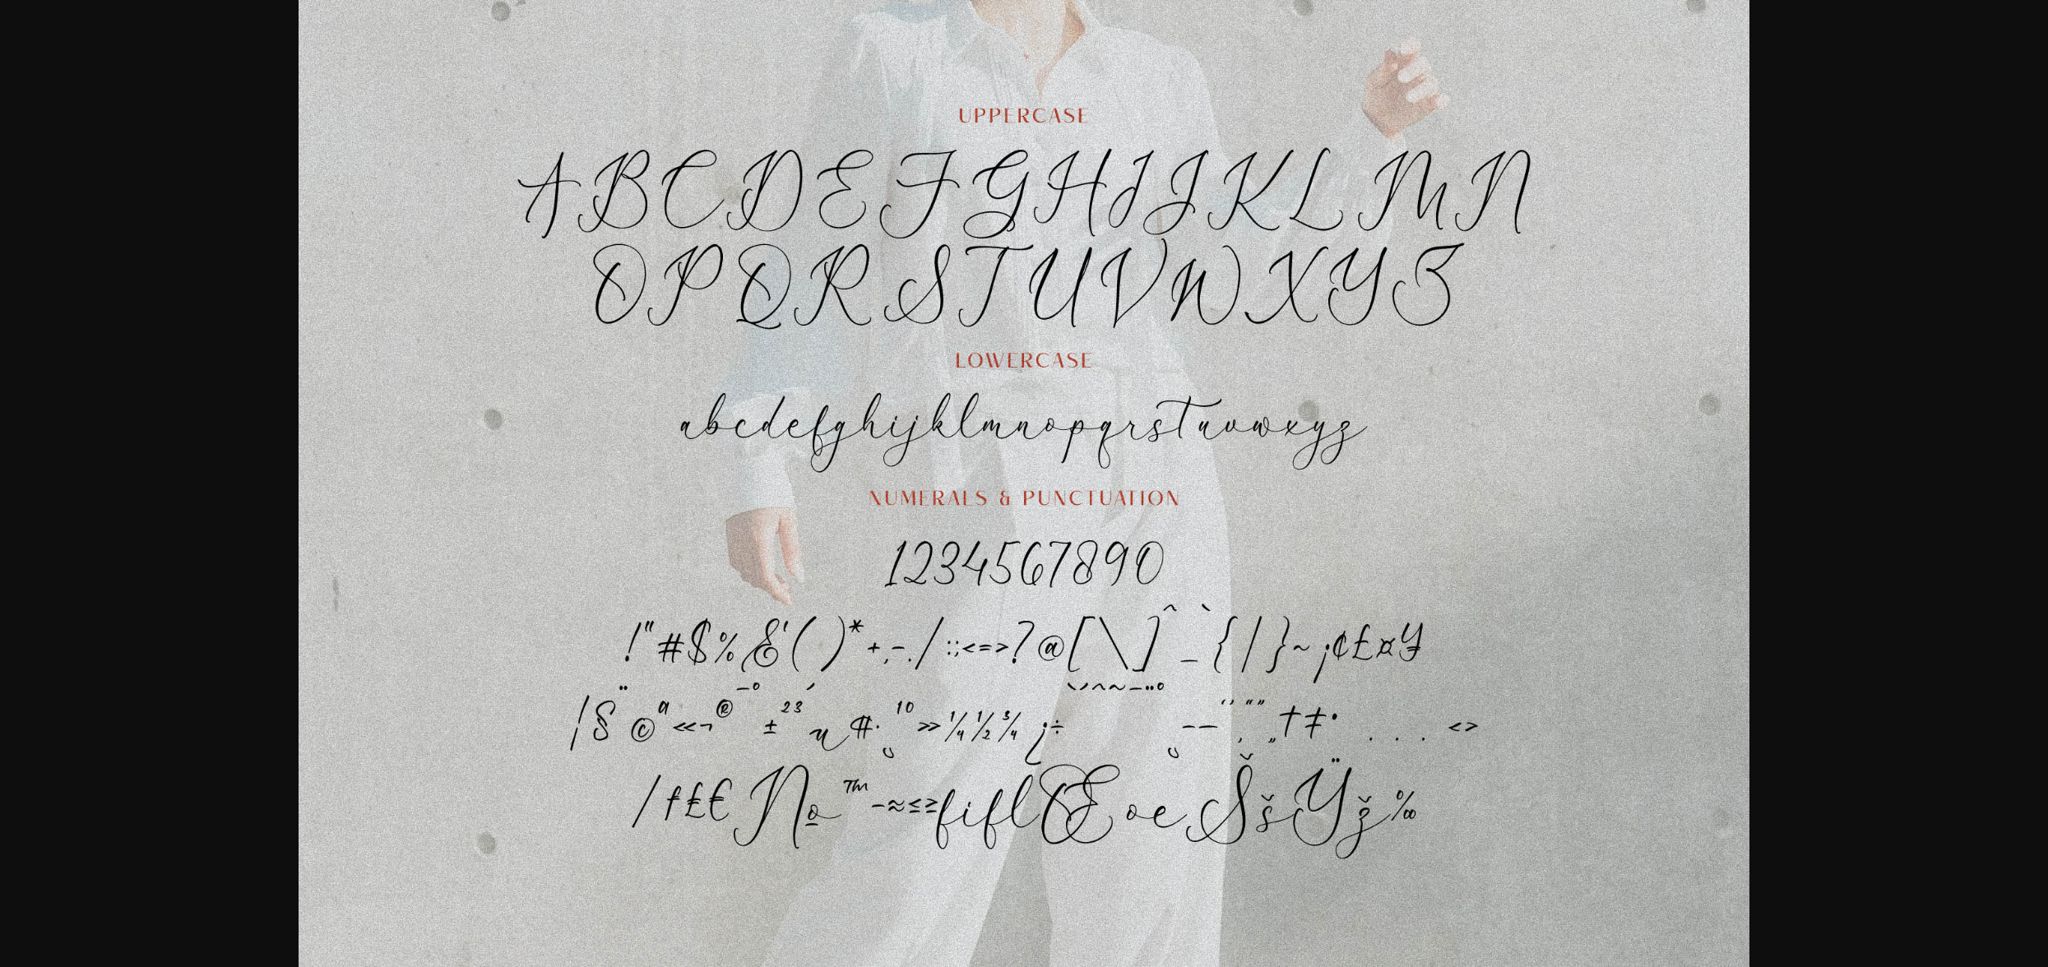 UPPERCASE
ABCDEFGHIJKLMN
OPQRSTUVWXYZ
LOWERCASE
abcdefghijklmnopqrstuvwxyz
NUMERALS & PUNCTUATION
1234567890
!"#$%&'()*+,-./:;<=>?@[\]^_`{|}~¡¢£¤¥
¦§¨©ª«¬®¯°±²³´µ¶·¸¹º»¼½¾¿÷ˆˇ˘˙˚˛–—‘’‚“”„†‡•…‹›
⁄ƒ₤€№™−≈≤≥fiflŒœŠšŸž‰